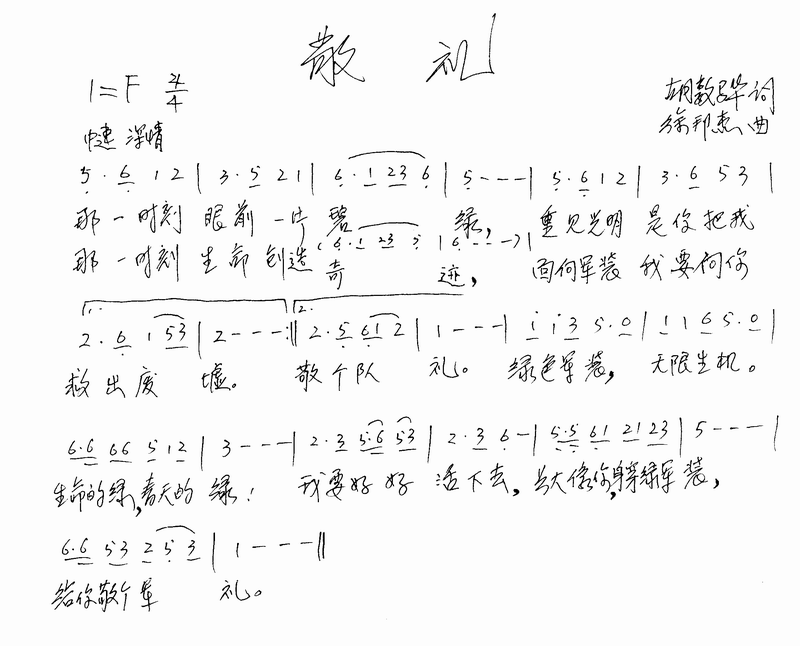 敬 礼
1=F 4/4
胡数 华词
中速 深情
徐邦杰曲
5·6 12 | 3·5 21 | 6·1 23 6 | 5 - - - | 5·6 12 | 3·6 53 |
那一时刻 眼前一片 碧 绿, 重见光明 是你把我
(6·1 23 5 | 6 - - -)
那一时刻 生命创造 奇 迹, 面向军装 我要向你
1. 2.
2·6 1 53 | 2 - - - :|| 2·5 61 2 | 1 - - - | 1 1 3 5·0 | 1 1 6 5·0 |
救出废 墟。 敬个队 礼。 绿色军装, 无限生机。
6·6 66 5 12 | 3 - - - | 2·3 5·6 53 | 2·3 6 - | 5·5 61 21 23 | 5 - - - |
生命的绿,春天的 绿! 我要好好 活下去,长大像你,身穿绿军装,
6·6 53 2 5 3 | 1 - - - ||
给你敬个军 礼。